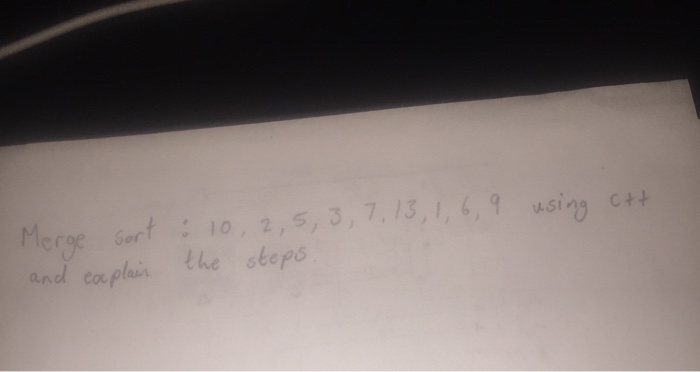 Merge sort : 10, 2, 5, 3, 7, 13, 1, 6, 9 using c++
and explain the steps.